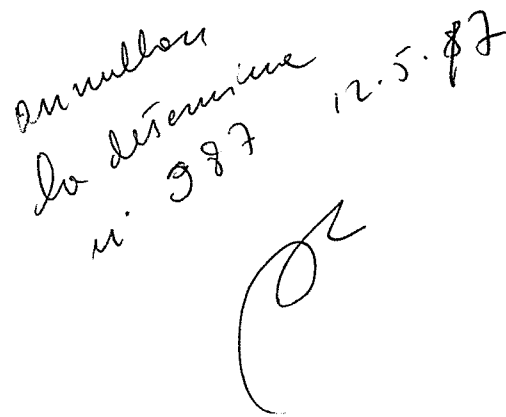 annullare
la determina
n. 987 12.5.87